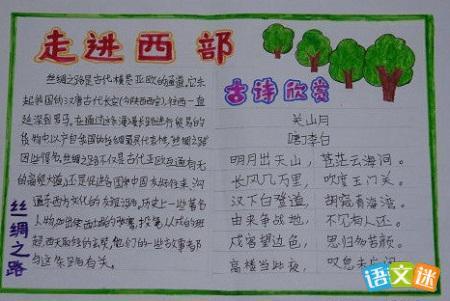 走进西部
丝绸之路是古代横贯亚欧的通道,它东
起我国的汉唐古代长安(今陕西西安),往西一直
延深到罗马。在通过这条漫长路进行贸易的
货物中以产自我国的丝绸最具代表性,丝绸之路
因此得名。丝绸之路不仅是古代亚欧互通有无
的商贸大道,还是促进各国和中国友好往来、沟
通东西方文化的友谊之路。历史上一些著名
人物,如出使西域的张骞,投笔从戎的班
超,西天取经的玄奘,他们的一些故事都
与这条路有关。
丝绸之路
古诗欣赏
关山月
[唐]李白
明月出天山，苍茫云海间。
长风几万里，吹度玉门关。
汉下白登道，胡窥青海湾。
由来争战地，不见有人还。
戍客望边色，思归多苦颜。
高楼当此夜，叹息未应闲。
语文迷